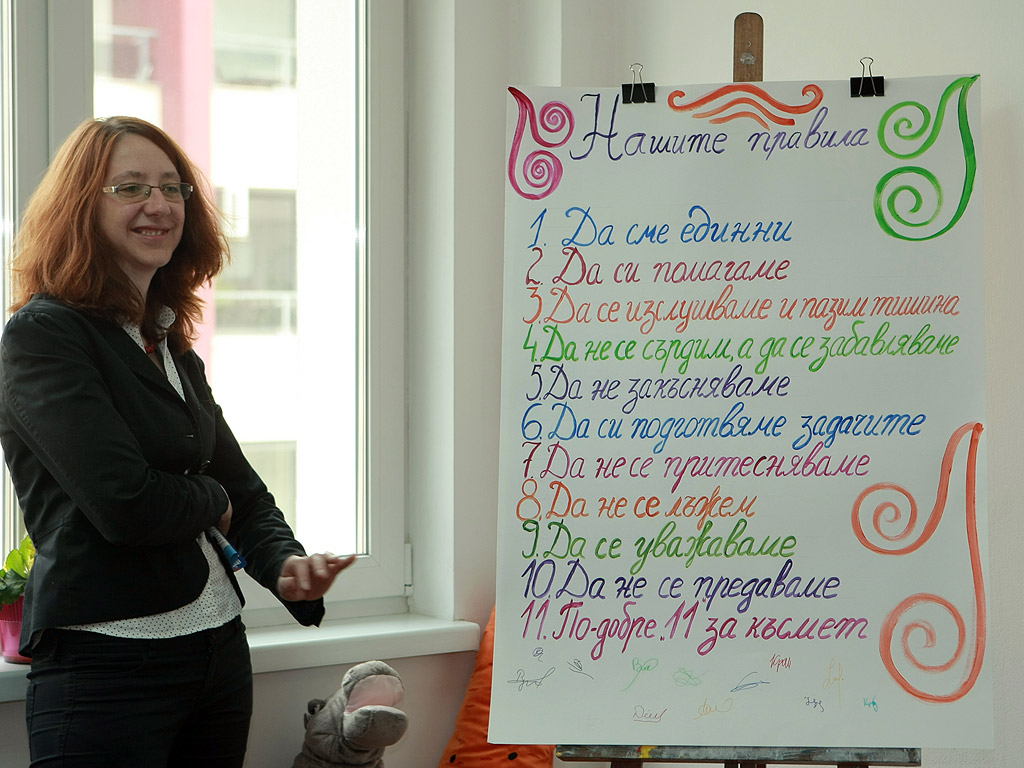 Нашите правила
1. Да сме единни
2. Да си помагаме
3. Да се изслушваме и пазим тишина
4. Да не се сърдим, а да се забавляваме
5. Да не закъсняваме
6. Да си подготвяме задачите
7. Да не се притесняваме
8. Да не се лъжем
9. Да се уважаваме
10. Да не се предаваме
11. По-добре.. 11 за късмет